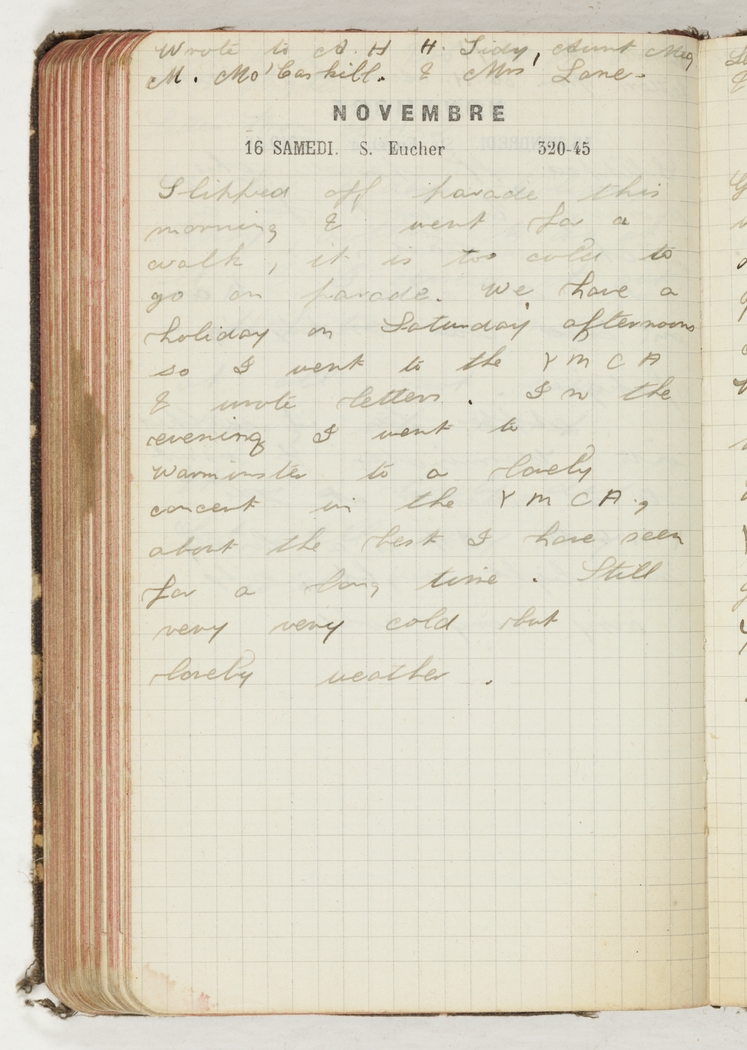 Wrote to A. H H. Tidy, Aunt Meg
M. Mc'Caskill. & Mrs Lane.
NOVEMBRE
16 SAMEDI. S. Eucher 320-45
Slipped off parade this
morning & went for a
walk, it is too cold to
go on parade. We have a
holiday on Saturday afternoons
so I went to the Y M C A
& wrote letters. In the
evening I went to
Warminster to a lovely
concert in the Y M C A,
about the best I have seen
for a long time. Still
very very cold but
lovely weather.